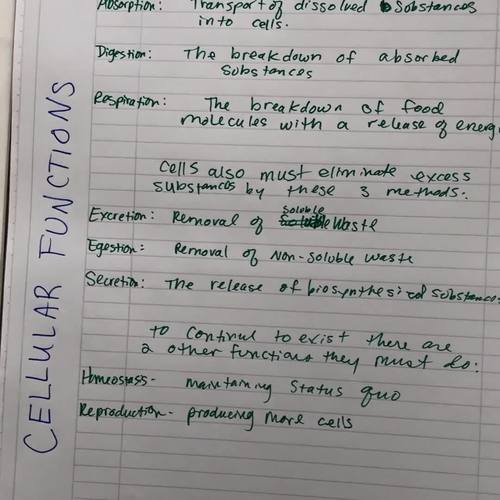 CELLULAR FUNCTIONS
Absorption: Transport of dissolved Substances
into cells.
Digestion: The breakdown of absorbed
substances
Respiration: The breakdown of food
molecules with a release of energ
Cells also must eliminate excess
substances by these 3 methods:
Excretion: Removal of soluble waste
Egestion: Removal of Non-soluble waste
Secretion: The release of biosynthesized substances
to continue to exist there are
2 other functions they must do:
Homeostasis - maintaining Status quo
Reproduction - producing more cells